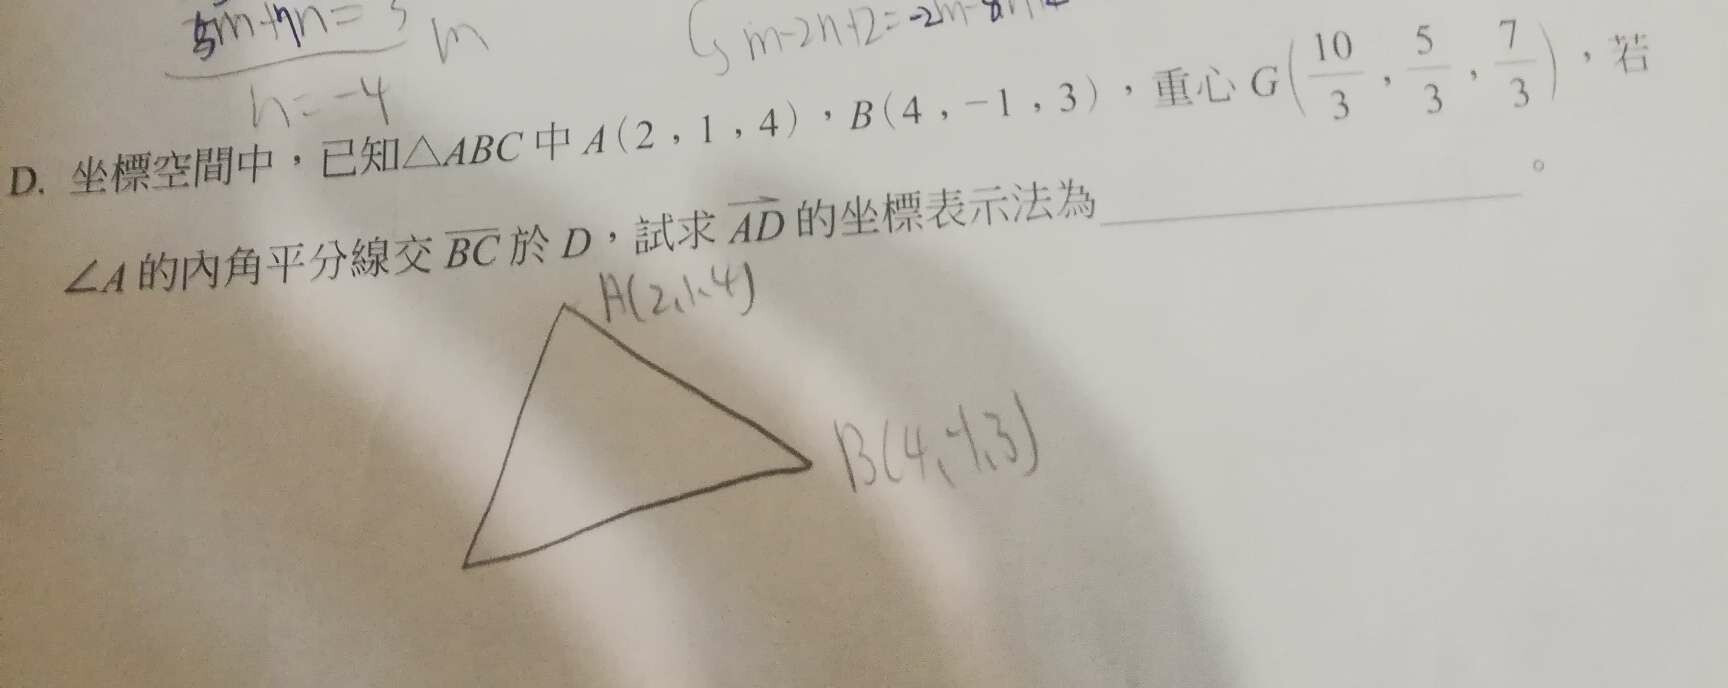 5m+4n=3 m
n=-4
m-2n+2=-2m-8n
D. 坐標空間中，已知△ABC 中 A(2，1，4)，B(4，-1，3)，重心 G(10/3，5/3，7/3)，若
∠A 的內角平分線交 BC 於 D，試求 AD 的坐標表示法為＿＿＿＿＿＿＿＿。
A(2,1,4)
B(4,-1,3)